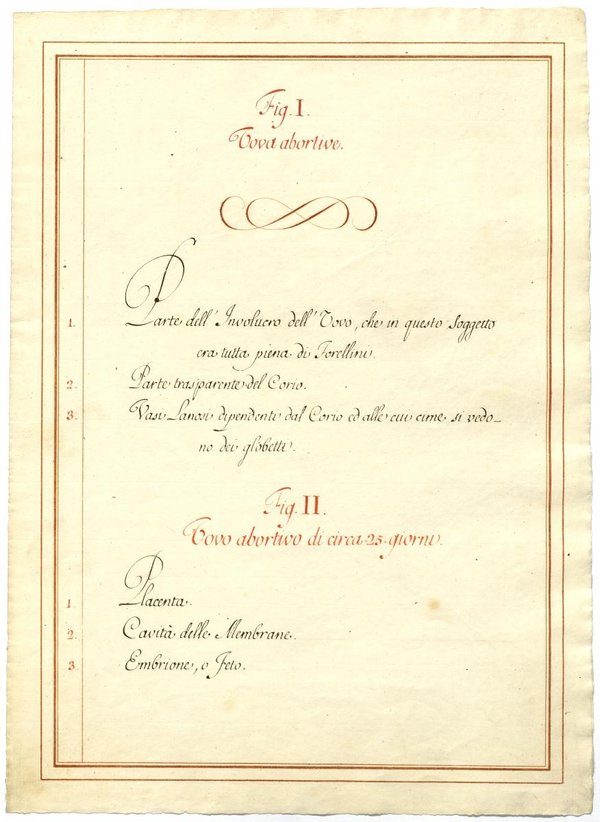 Fig. I.
Vova abortive.
1. Parte dell' Involucro dell' Vovo, che in questo Soggetto
era tutta piena di Forellini.
2. Parte trasparente del Corio.
3. Vasi Lanosi dipendente dal Corio ed alle cui cime si vedo-
no dei globetti.
Fig. II.
Vovo abortivo di circa 25 giorni.
1. Placenta.
2. Cavità delle Membrane.
3. Embrione, o Feto.